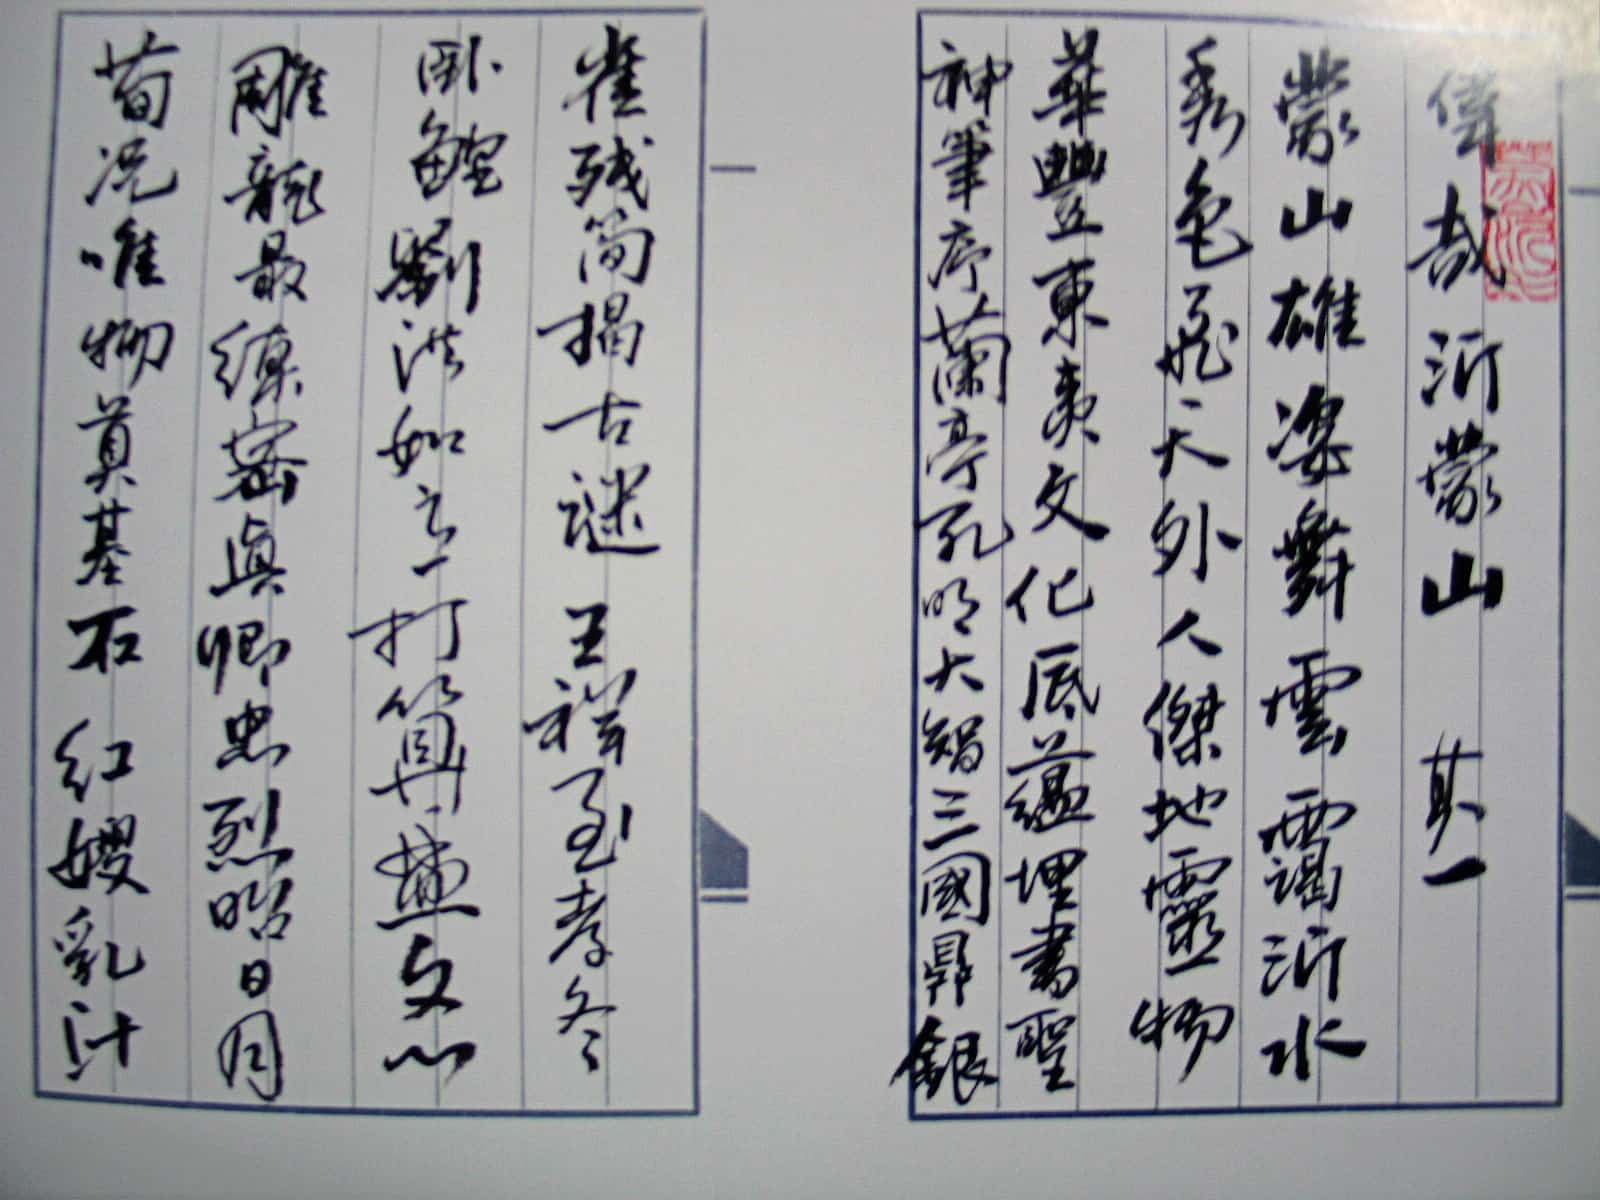 偉哉沂蒙山 其一
蒙山雄姿舞雲靄沂水
秀色飛天外人傑地靈物
華豐東夷文化底蘊埋書聖
神筆序蘭亭孔明大智三國鼎銀
雀殘简揭古謎王祥至孝冬
卧鯉劉洪如立打算盡文心
雕龍最縝密真卿忠烈昭日月
荀况唯物奠基石红嫂乳汁